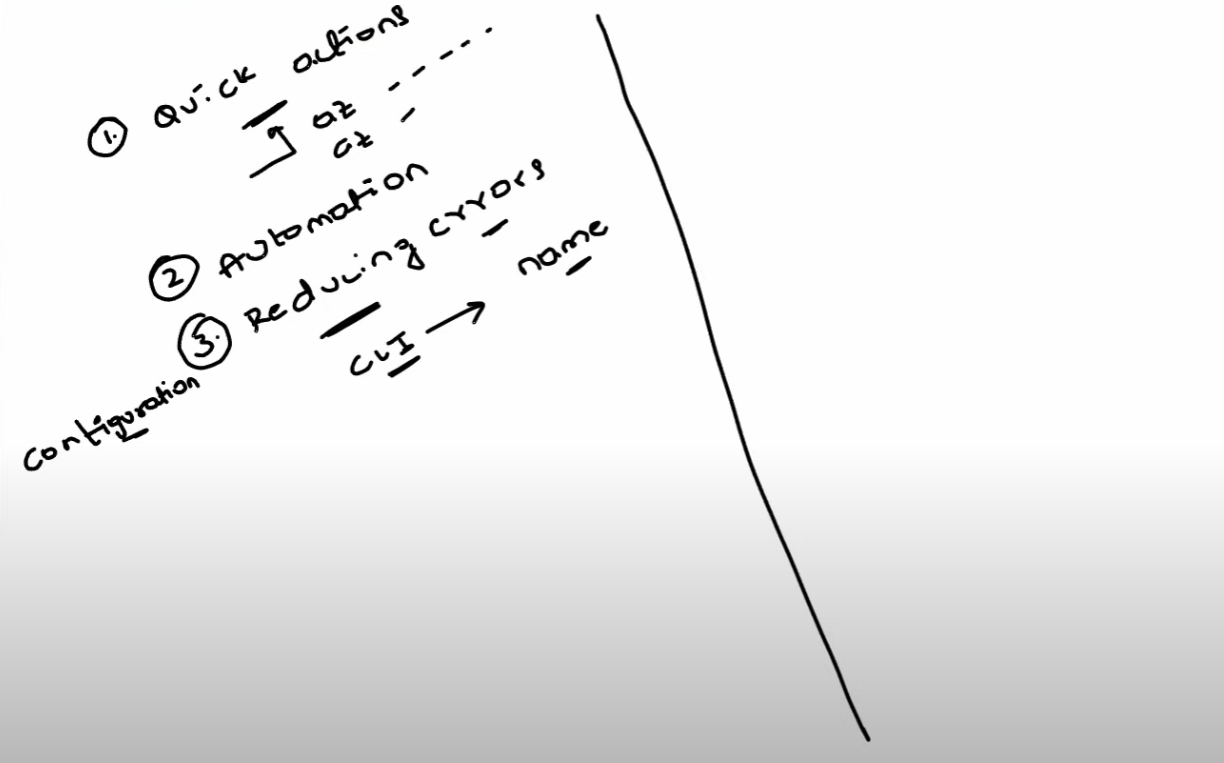 1. Quick actions
az - - - - -
az -
2 Automation
3. Reducing errors
CLI → name
Configuration